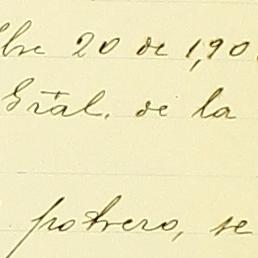 bre 20 de 1,90
Gral. de la
potrero, se